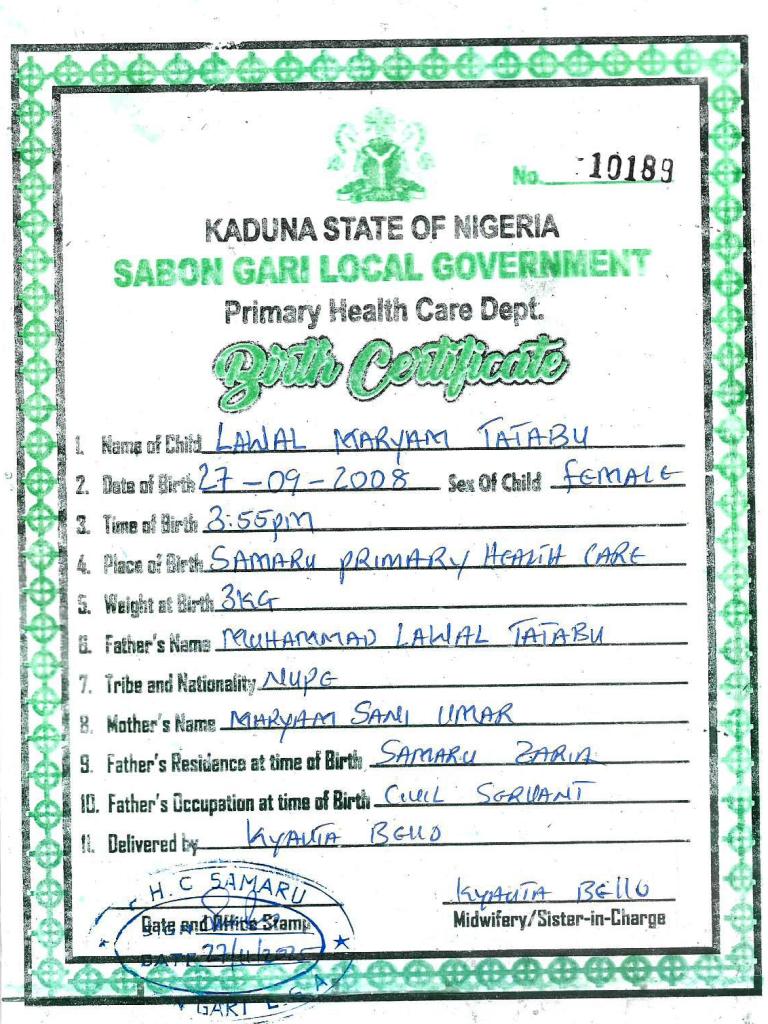 No. 10189
KADUNA STATE OF NIGERIA
SABON GARI LOCAL GOVERNMENT
Primary Health Care Dept.
Birth Certificate
1. Name of Child LAWAL MARYAM TATABU
2. Date of Birth 27-09-2008 Sex Of Child FEMALE
3. Time of Birth 3:55pm
4. Place of Birth SAMARU PRIMARY HEALTH CARE
5. Weight at Birth 3KG
6. Father's Name MUHAMMAD LAWAL TATABU
7. Tribe and Nationality NUPE
8. Mother's Name MARYAM SANI UMAR
9. Father's Residence at time of Birth SAMARU ZARIA
10. Father's Occupation at time of Birth CIVIL SERVANT
11. Delivered by KYAUTA BELLO
H.C SAMARU
KYAUTA BELLO
Date and Office Stamp
Midwifery/Sister-in-Charge
SIGN
DATE 27/11/2025
GARI L.G.A